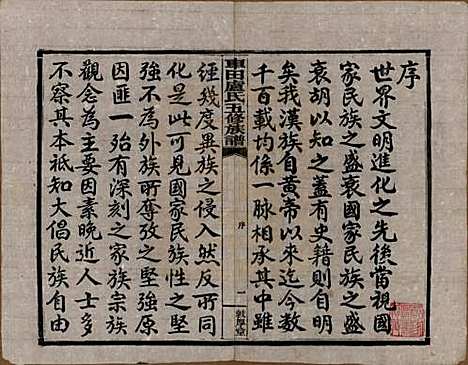 序
世界文明進化之先後當視國
家民族之盛衰國家民族之盛
衰胡以知之蓋有史籍則自明
矣我漢族自黃帝以來迄今數
千百載均係一脈相承其中雖
車田盧氏五修族譜
序
一
敦厚堂
經幾度異族之侵入然反而同
化是此可見國家民族性之堅
強不為外族所奪攷之堅強原
因匪一殆有深刻之家族宗族
觀念為主要因素晚近人士多
不察其本祇知大倡民族自由